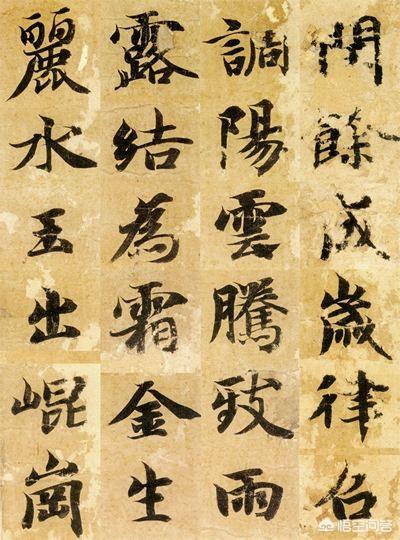 閏餘成歲律召
調陽雲騰致雨
露結為霜金生
麗水玉出崐崗
悟空问答